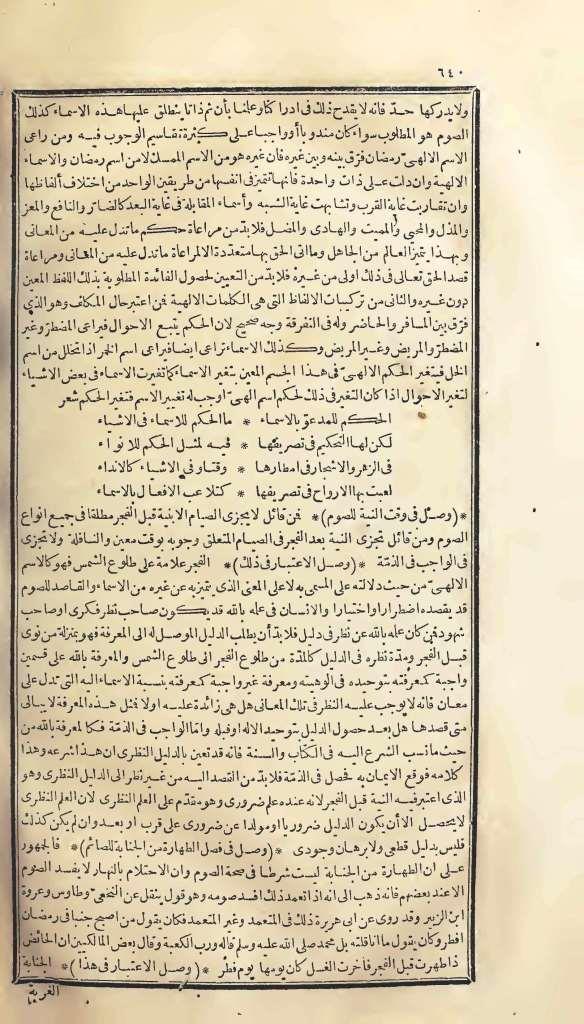 ٦٤٠
ولا يدركها حدّ فانه لا يقدح ذلك فى ادراكنا وعلمنا بأن ثم ذاتا ينطلق عليها هذه الاسماء كذلك
الصوم هو المطلوب سواء كان مندوبا أو واجبا على كثرة تقاسيم الوجوب فيه ومن راعى
الاسم الالهىّ رمضان فرّق بينه وبين غيره فان غيره هو من الاسم الممسك لا من اسم رمضان والاسماء
الالهية وان دلت على ذات واحدة فانها تتميز فى انفسها من طريقين الواحد من اختلاف ألفاظها
وان تقاربت غاية القرب وتشابهت غاية الشبه وأسماء المقابلة فى غاية البعد كالضارّ والنافع والمعز
والمذل والمحيى والمميت والهادى والمضل فلا بدّ من مراعاة حكم ما تدل عليه من المعانى
وبهذا يتميز العالم من الجاهل وما اتى الحق بها متعدّدة الا لمراعاة ما تدل عليه من المعانى ومراعاة
قصد الحق تعالى فى ذلك اولى من غيره فلا بدّ من التعيين لحصول الفائدة المطلوبة بذلك اللفظ المعين
دون غيره والثانى من تركيبات الالفاظ التى هى الكلمات الالهية فمن اعتبر حال المكلف وهو الذى
فرّق بين المسافر والحاضر وله فى التفرقة وجه صحيح لان الحكم يتبع الاحوال فيراعى المضطرّ وغير
المضطرّ والمريض وغير المريض وكذلك الاسماء تراعى ايضا فيراعى اسم الخمر اذا تخلل من اسم
الخل فيتغير الحكم الالهىّ فى هذا الجسم المعين بتغير الاسماء كما تغيرت الاسماء فى بعض الاشياء
لتغير الاحوال اذا كان التغير فى ذلك لحكم اسم الهىّ اوجب له تغيير الاسم فتغير الحكم شعر
الحكم للمدعوّ بالاسماء * ما الحكم للاسماء فى الاشياء
لكن لها التحكيم فى تصريفها * فيه لمثل الحكم للانواء
فى الزهر والاشجار فى امطارها * وقتا وفى الاشياء كالانداء
لعبت بها الارواح فى تصريفها * كتلاعب الافعال بالاسماء
* (وصل فى وقت النية للصوم) * فمن قائل لا يجزى الصيام الا بنية قبل الفجر مطلقا فى جميع انواع
الصوم ومن قائل تجزى النية بعد الفجر فى الصيام المتعلق وجوبه بوقت معين والنافلة ولا تجزى
فى الواجب فى الذمّة * (وصل الاعتبار فى ذلك) * الفجر علامة على طلوع الشمس فهو كالاسم
الالهىّ من حيث دلالته على المسمى به لا على المعنى الذى يتميز به عن غيره من الاسماء والقاصد للصوم
قد يقصده اضطرارا واختيارا والانسان فى علمه بالله قد يكون صاحب نظر فكرى او صاحب
شهود فمن كان علمه بالله عن نظر فى دليل فلا بدّ أن يطلب الدليل الموصل له الى المعرفة فهو بمنزلة من نوى
قبل الفجر ومدّة نظره فى الدليل كالمدّة من طلوع الفجر الى طلوع الشمس والمعرفة بالله على قسمين
واجبة كمعرفته بتوحيده فى الوهيته ومعرفة غير واجبة كمعرفته بنسبة الاسماء اليه التى تدل على
معان فانه لا يوجب عليه النظر فى تلك المعانى هل هى زائدة عليه اولا فمثل هذه المعرفة لا يبالى
متى قصدها هل بعد حصول الدليل بتوحيد الاله او قبله واما الواجب فى الذمّة فكالمعرفة بالله من
حيث ما نسب الشرع اليه فى الكتاب والسنة فانه قد تعين بالدليل النظرى ان هذا شرعه وهذا
كلامه فوقع الايمان به فحصل فى الذمّة فلا بدّ من القصد اليه من غير نظر الى الدليل النظرى وهو
الذى اعتبر فيه النية قبل الفجر لانه عنده علم ضرورى وهو مقدّم على العلم النظرى لان العلم النظرى
لا يحصل الا أن يكون الدليل ضروريا او مولدا عن ضرورى على قرب او بعد وان لم يكن كذلك
فليس بدليل قطعى ولا برهان وجودى * (وصل فى فصل الطهارة من الجنابة للصائم) * فالجمهور
على ان الطهارة من الجنابة ليست شرطا فى صحة الصوم وان الاحتلام بالنهار لا يفسد الصوم
الا عند بعضهم فانه ذهب الى انه اذا تعمد ذلك افسد صومه وهو قول ينقل عن النخعىّ وطاوس وعروة
ابن الزبير وقد روى عن ابى هريرة ذلك فى المتعمد وغير المتعمد فكان يقول من اصبح جنبا فى رمضان
افطر وكان يقول ما انا قلته بل محمد صلى الله عليه وسلم قاله ورب الكعبة وقال بعض المالكيين ان الحائض
ذا طهرت قبل الفجر فأخرت الغسل كان يومها يوم فطر * (وصل الاعتبار فى هذا) * الجنابة
الغربة